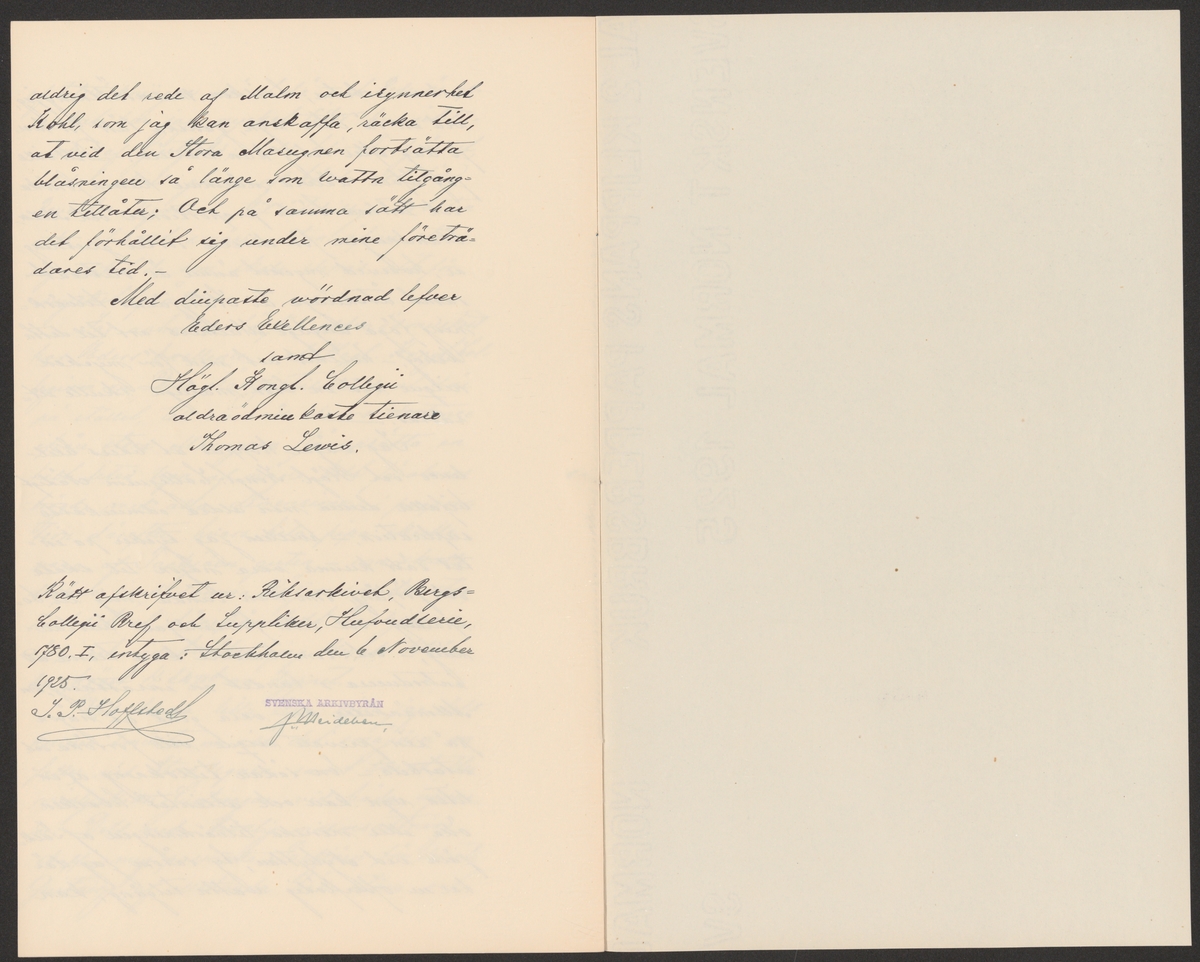 aldrig det rede af Malm och isynnerhet
Kohl, som jag kan anskaffa, räcka till,
at vid den Stora Masugnen fortsätta
blåsningen så länge som wattn tilgång=
en tillåter; Och på samma sätt har
det förhållit sig under mine företrä=
dares tid.-
Med diupaste wördnad lefver
Eders Exellences
samt
Högl. Kongl. Collegii
aldraödmiukaste tienare
Thomas Lewis.
Rätt afskrifvet ur: Riksarkivet, Bergs=
Collegii Bref och Suppliker, Hufvudserie,
780. I, intyga: Stockholm den 6 November
1925.
J. P. Hoffstedt
SVENSKA ARKIVBYRÅN